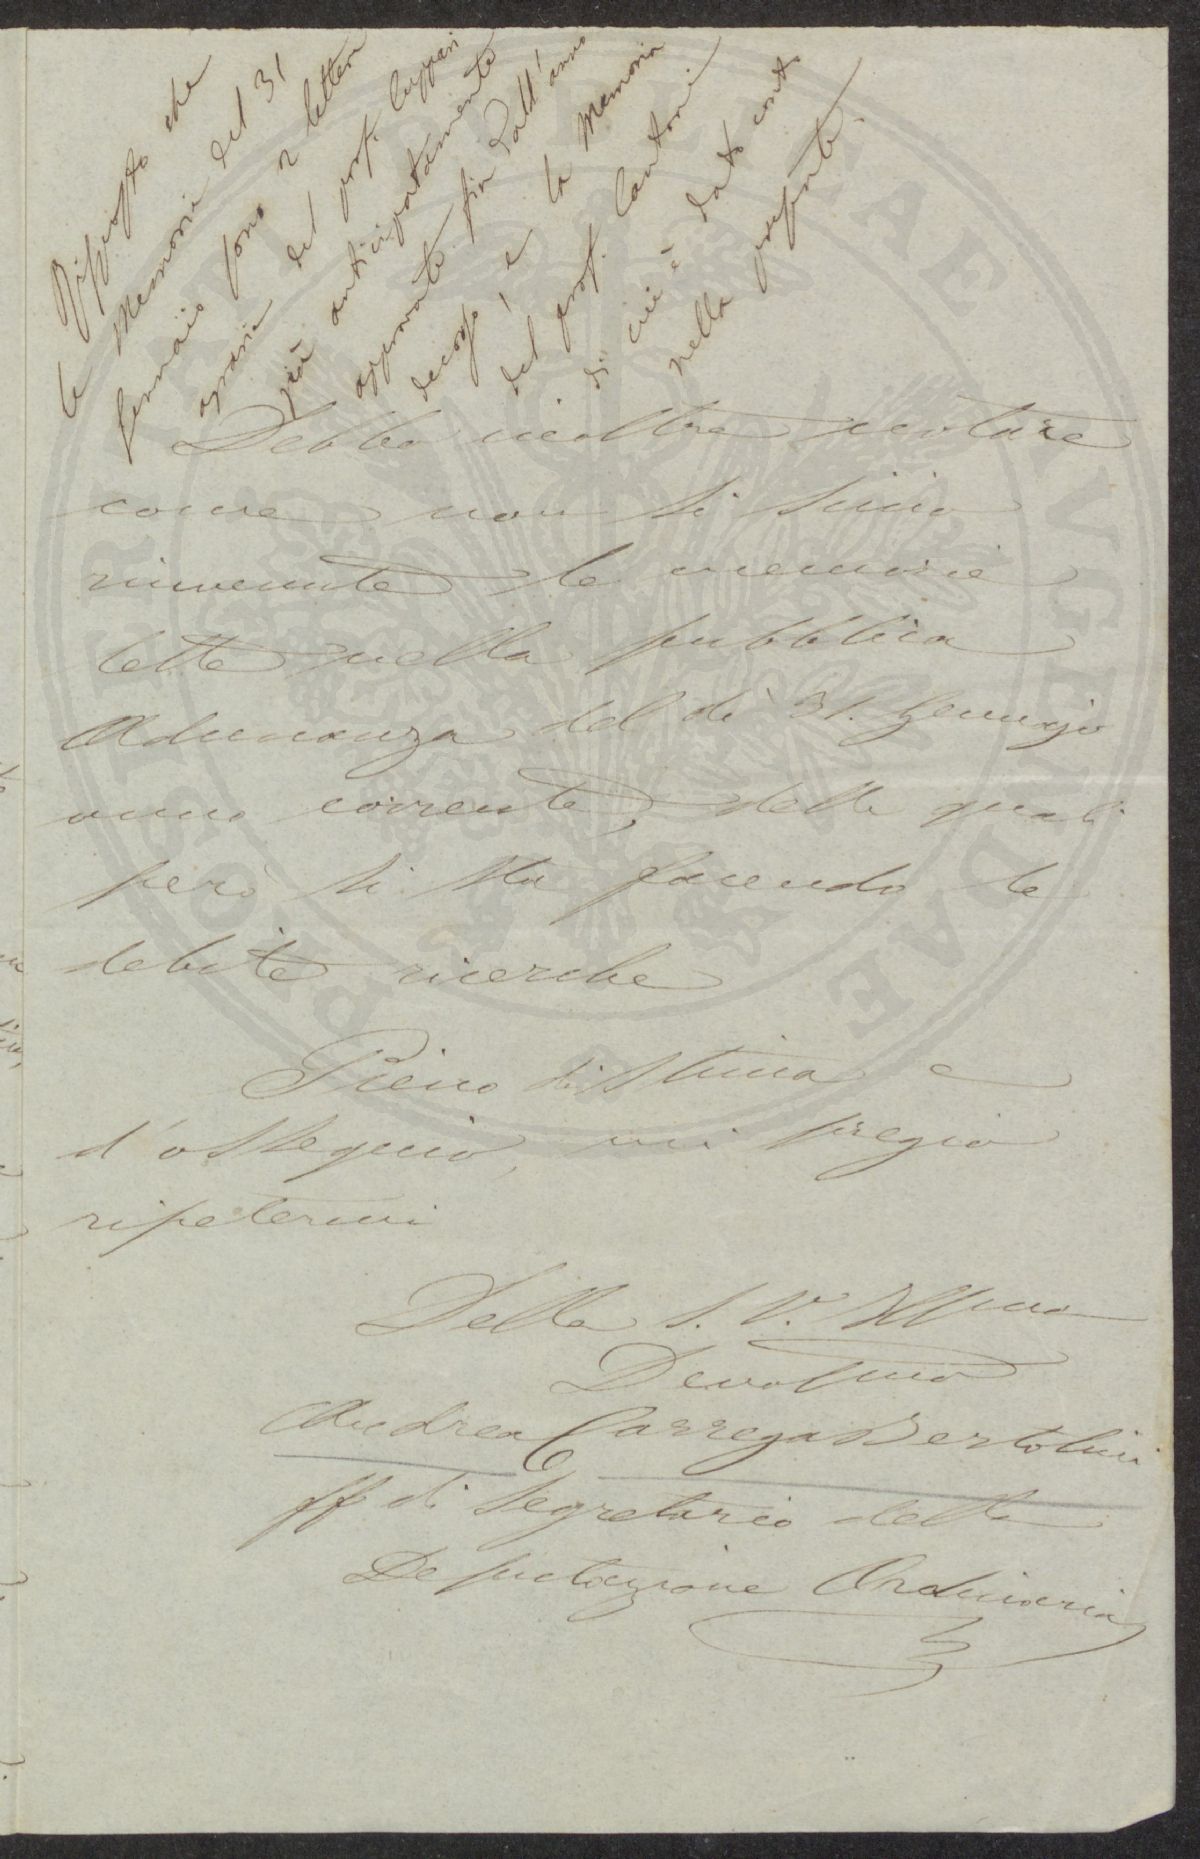 Risposto che
le Memorie del 31
Gennaio sono 2 lettere
agrarie del prof. Cuppari
già anticipatamente
approvate fin dall'anno
decorso, e la Memoria
del prof. Cantoni
di cui è dato conto
nella presente.
Debbo inoltre notare
come non si sieno
rinvenute le memorie
lette nella pubblica
Adunanza del dì 31. Gennajo
anno corrente, delle quali
però si sta facendo le
debite ricerche
Pieno di stima e
d'ossequio, mi pregio
ripetermi
Della S. V. Illma
Devotmo
Andrea Carrega Bertolini
ff di Segretario della
Deputazione Ordinaria
PROSPERITATI PUBLICAE AUGENDAE